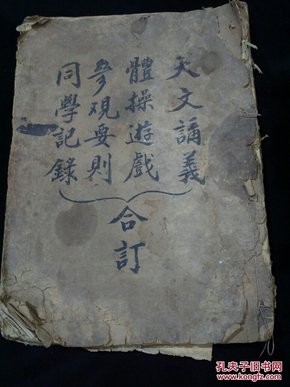 天文講義
體操遊戲
參观要則
同學記錄
合訂
孔夫子旧书网